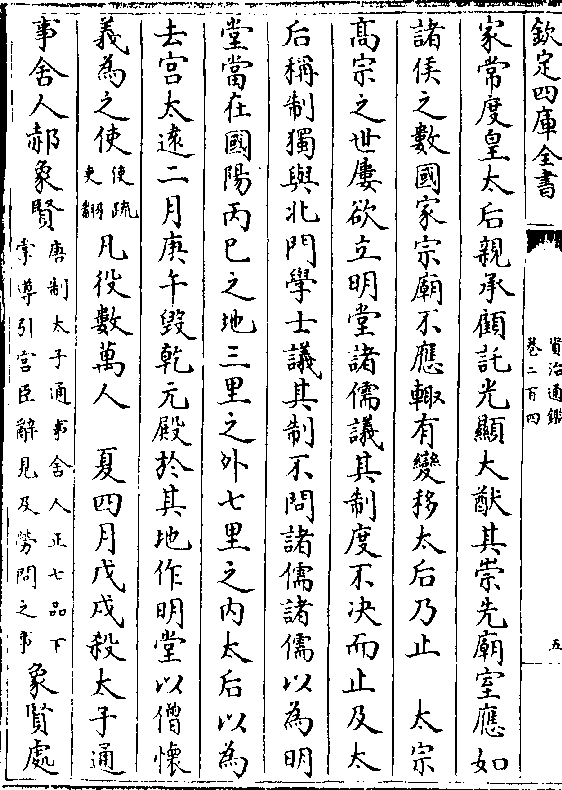 欽定四庫全書
資治通鑑
卷二百四
五
家常度皇太后親承顧託光顯大猷其崇先廟室應如
諸侯之數國家宗廟不應輒有變移太后乃止　太宗
高宗之世屢欲立明堂諸儒議其制度不決而止及太
后稱制獨與北門學士議其制不問諸儒諸儒以為明
堂當在國陽丙巳之地三里之外七里之內太后以為
去宮太遠二月庚午毀乾元殿於其地作明堂以僧懷
義為之使使疏吏翻凡役數萬人　夏四月戊戌殺太子通
事舍人郝象賢唐制太子通事舍人正七品下掌導引宮臣辭見及勞問之事象賢處